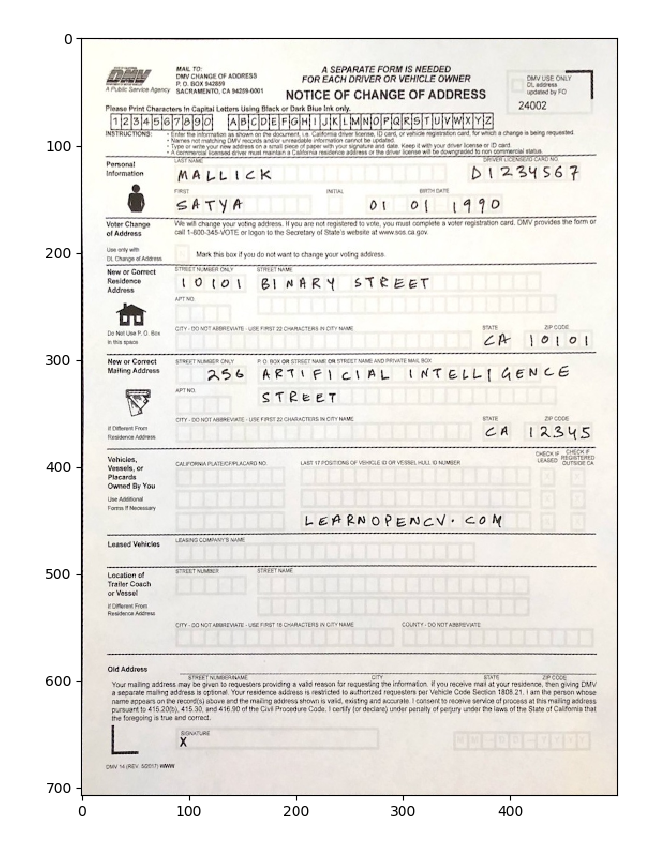 0
100
200
300
400
500
600
700
0
100
200
300
400
DMV
A Public Service Agency
MAIL TO:
DMV CHANGE OF ADDRESS
P. O. BOX 942859
SACRAMENTO, CA 94259-0001
A SEPARATE FORM IS NEEDED
FOR EACH DRIVER OR VEHICLE OWNER
NOTICE OF CHANGE OF ADDRESS
DMV USE ONLY
DL address
updated by FO
24002
Please Print Characters In Capital Letters Using Black or Dark Blue Ink only.
1234567890 ABCDEFGHIJKLMNOPQRSTUVWXYZ
INSTRUCTIONS:
• Enter the information as shown on the document, i.e. California driver license, ID card, or vehicle registration card, for which a change is being requested.
• Names not matching DMV records and/or unreadable information cannot be updated.
• Type or write your new address on a small piece of paper with your signature and date. Keep it with your driver license or ID card.
• A commercial licensed driver must maintain a California residence address or the driver license will be downgraded to non commercial status.
Personal
Information
LAST NAME
DRIVER LICENSE/ID CARD NO.
MALLICK
D1234567
FIRST
INITIAL
BIRTH DATE
SATYA
01 01 1990
Voter Change
of Address
We will change your voting address. If you are not registered to vote, you must complete a voter registration card. DMV provides the form or
call 1-800-345-VOTE or logon to the Secretary of State's website at www.sos.ca.gov.
Use only with
DL Change of Address
Mark this box if you do not want to change your voting address.
New or Correct
Residence
Address
STREET NUMBER ONLY
STREET NAME
10101 BINARY STREET
APT NO.
Do Not Use P. O. Box
in this space
CITY - DO NOT ABBREVIATE - USE FIRST 22 CHARACTERS IN CITY NAME
STATE
ZIP CODE
CA 10101
New or Correct
Mailing Address
STREET NUMBER ONLY
P.O. BOX OR STREET NAME OR STREET NAME AND PRIVATE MAIL BOX
256 ARTIFICIAL INTELLIGENCE
APT NO.
STREET
If Different From
Residence Address
CITY - DO NOT ABBREVIATE - USE FIRST 22 CHARACTERS IN CITY NAME
STATE
ZIP CODE
CA 12345
Vehicles,
Vessels, or
Placards
Owned By You
CALIFORNIA PLATE/CF/PLACARD NO.
LAST 17 POSITIONS OF VEHICLE ID OR VESSEL HULL ID NUMBER
CHECK IF
LEASED
CHECK IF
REGISTERED
OUTSIDE CA
Use Additional
Forms If Necessary
LEARNOPENCV.COM
Leased Vehicles
LEASING COMPANY'S NAME
Location of
Trailer Coach
or Vessel
STREET NUMBER
STREET NAME
If Different From
Residence Address
CITY - DO NOT ABBREVIATE - USE FIRST 16 CHARACTERS IN CITY NAME
COUNTY - DO NOT ABBREVIATE
Old Address
STREET NUMBER/NAME
CITY
STATE
ZIP CODE
Your mailing address may be given to requesters providing a valid reason for requesting the information. If you receive mail at your residence, then giving DMV
a separate mailing address is optional. Your residence address is restricted to authorized requesters per Vehicle Code Section 1808.21. I am the person whose
name appears on the record(s) above and the mailing address shown is valid, existing and accurate. I consent to receive service of process at this mailing address
pursuant to 415.20(b), 415.30, and 416.90 of the Civil Procedure Code. I certify (or declare) under penalty of perjury under the laws of the State of California that
the foregoing is true and correct.
SIGNATURE
X
MM-DD-YYYY
DMV 14 (REV. 5/2017) WWW